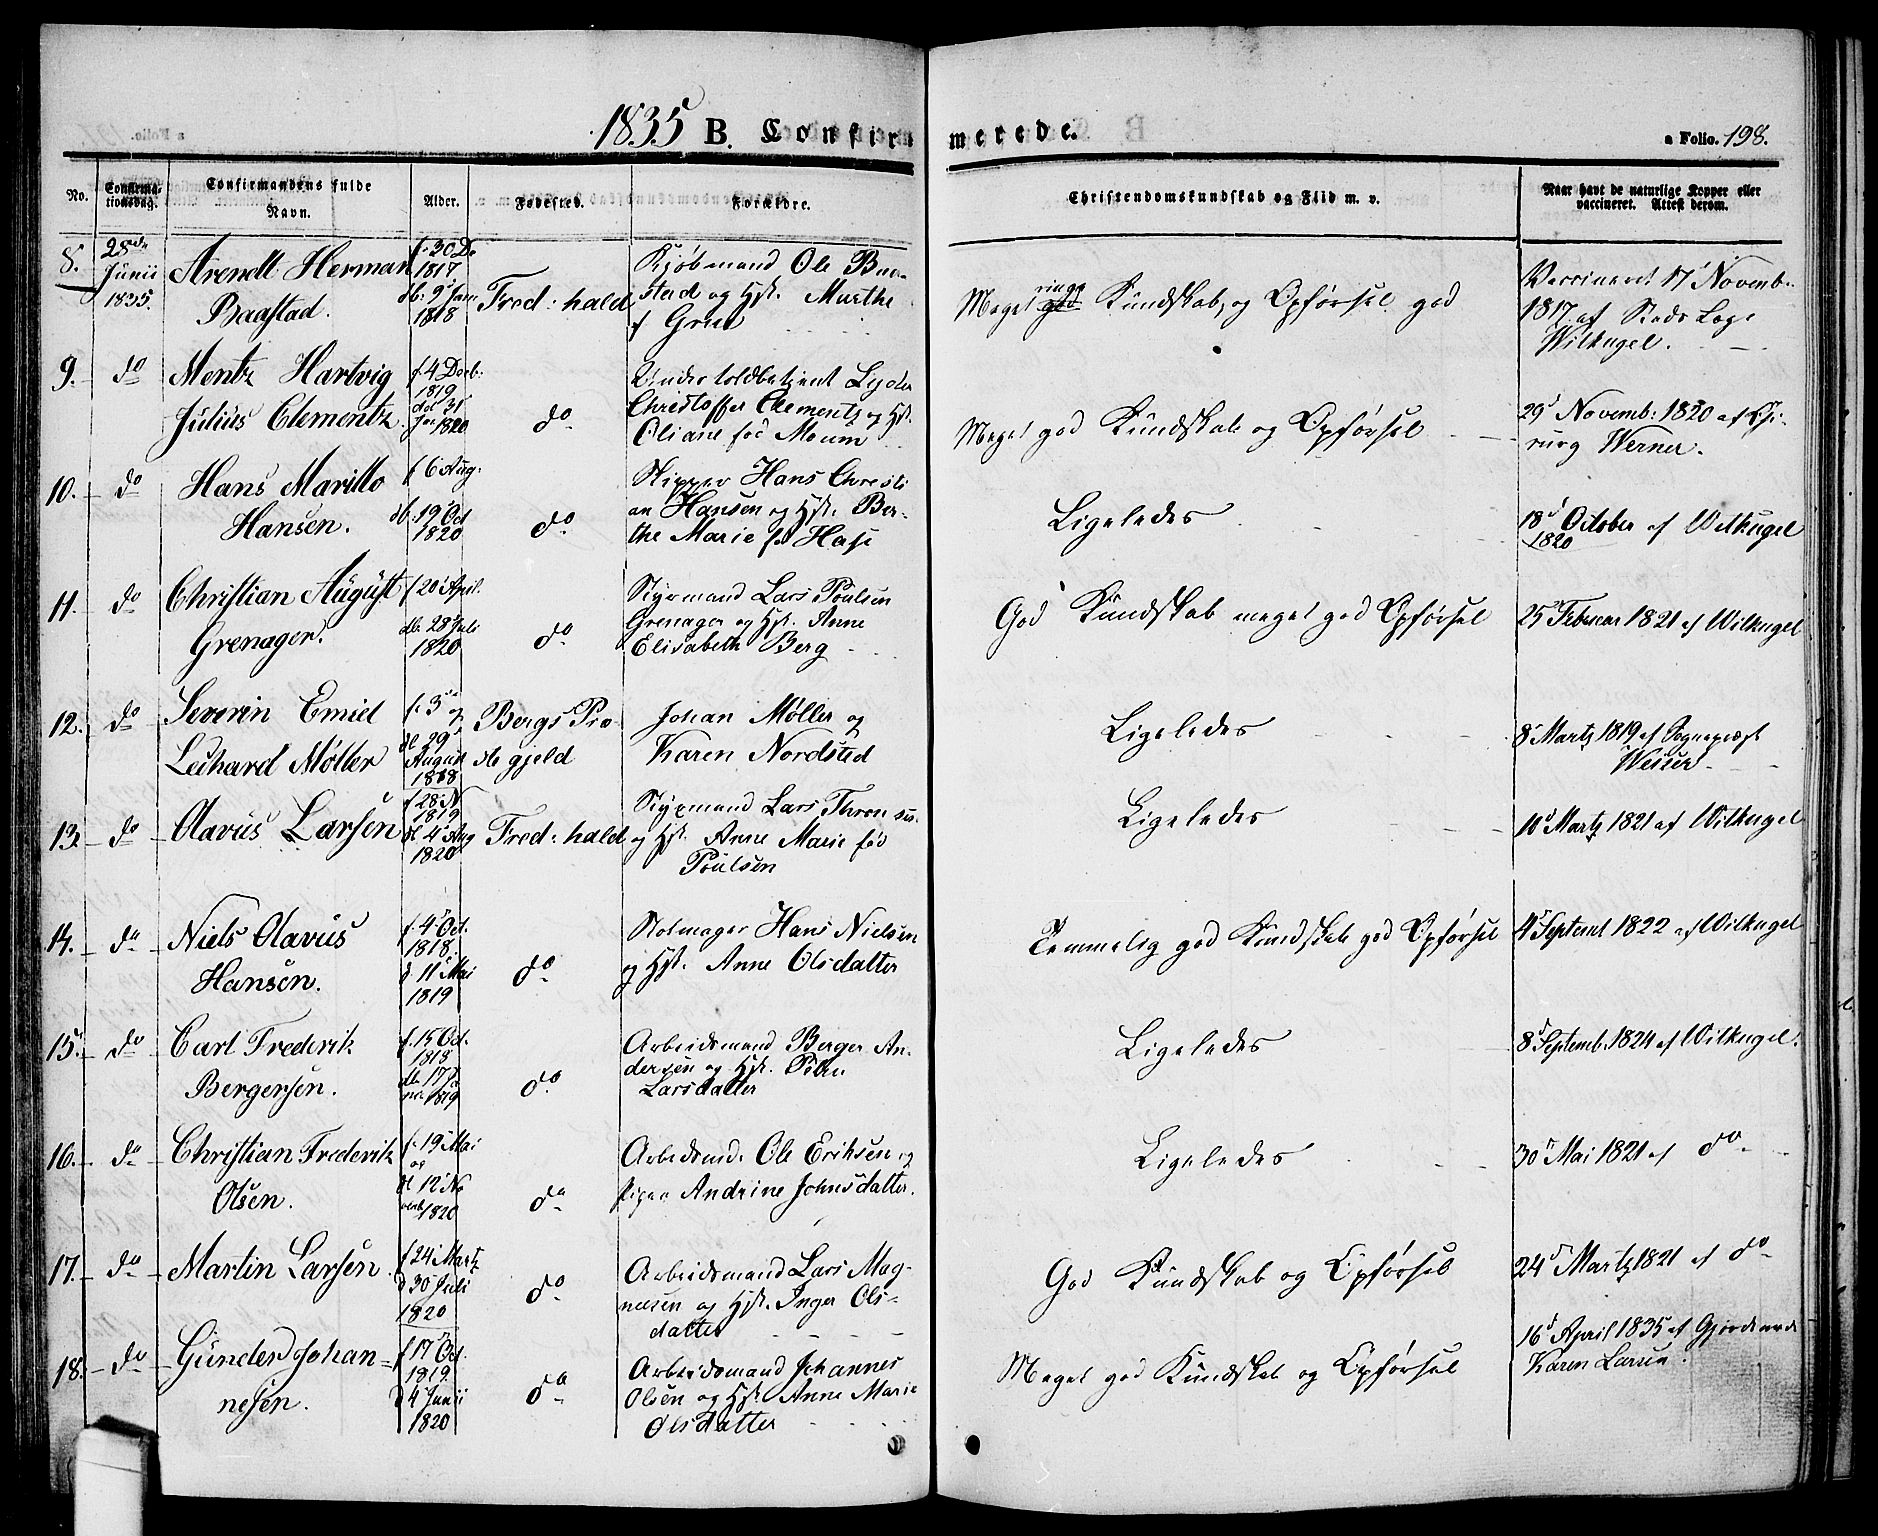 1835 B. Confirmerede.
a Folio. 198.
No. Confirmationsdag. Confirmandens fulde Navn. Alder. Fødested. Forældre. Christendomskundskab og Flid m. v. Naar havt de naturlige Kopper eller vaccineret. Attest derom.
8. 28de Junii 1835. Arendt Herman Baastad. f. 30 De 1817. db. 9 Jan 1818 Fred: hald Kjøbmand Ole Baastad og Hst. Marthe f Meget ringe Kundskab, og Opførsel god Vaccineret 17 Novemb. 1817 af Stads Læge Wilkugel.
9. do Mentz Hartvig Julius Clementz. f. 4 Decb: 1819 31 Jan 1820 do Undertoldbetjent Lyder Christoffer Clementz og Hst. Oliane fød Moum Meget god Kundskab og Opførsel 29 Novemb: 1820 af Chirurg Werner.
10. do Hans Marillo Hansen. f 6 Aug: db. 19 Oct 1820 do Skipper Hans Christian Hansen og Hst. Berthe Marie f. Ligeledes 18 October 1820 af Wilkugel
11. do Christian August Grenager. f 20 April. db. 28 Juli 1820 do Styrmand Lars Poulsen Grenager og Hst. Anne Elisabeth Berg God Kundskab meget god Opførsel 25 Februar 1821 af Wilkugel
12. do Severin Emiel Møller f. 3 og dl 29 August 1818 Bergs Præstegjeld Johan Møller og Karen Nordsted Ligeledes 8 Martz 1819 af Sognepræst
13. do Olavus Larsen f 28 N 1819 dl 4 Aug 1820 Fred: hald Styrmand Lars og Hst. Anne Marie fød Poulsen Ligeledes 10 Martz 1821 af Wilkugel
14. do Niels Olavus Hansen. f. 4 Oct. 1818. d 11 Mai 1819 do Hans Nielsen og Hst. Anne Olsdatter Temmelig god Kundskab god Opførsel 4 Septemt 1822 af Wilkugel
15. do Carl Frederik Bergersen. f. 15 Oct. 1818 db 17 1819 do Arbeidsmand Berger Andersen og Hst. Larsdatter Ligeledes 8 Septemb. 1824 af Wilkugel.
16. do Christian Frederik Olsen. f. 19 Mai og dl 12 No 1820 do Arbeidsmd. Ole Eriksen og pigen Andrine Johnsdatter. Ligeledes 30 Mai 1821 af do
17. do Martin Larsen. f 24 Martz d 30 Juli 1820 do Arbeidsmand Lars Magnesen og Hst. Inger Olsdatter God Kundskab og Opførsel 24 Martz 1821 af do
18. do Gunder Johannesen. f 17 Oct. 1819. d 4 Junii 1820 do Arbeidsmand Johannes Olsen og Hst. Anne Marie Olsdatter Meget god Kundskab og Opførsel 16 April 1835 af Karen Larsen.